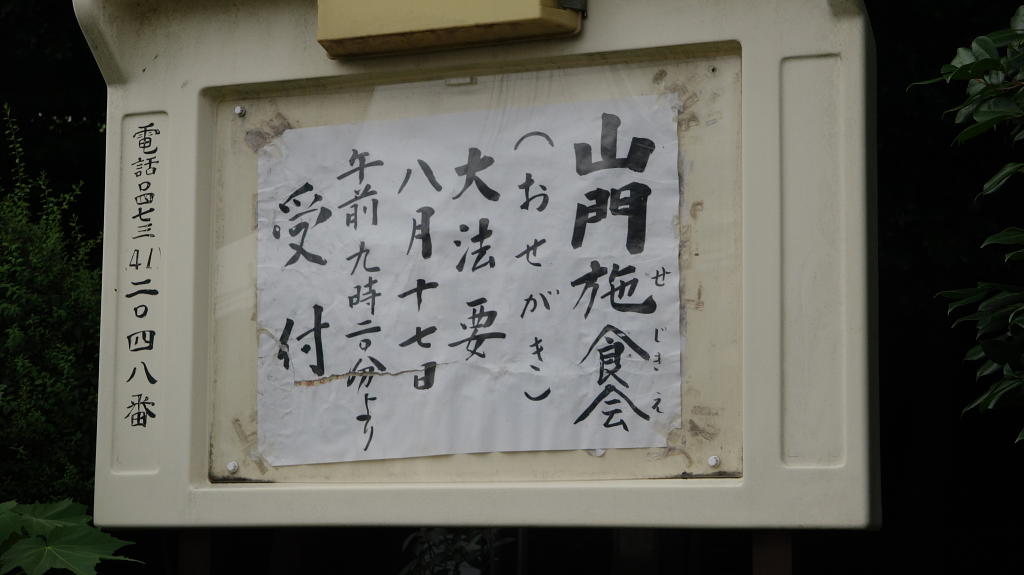 山門施食会
せじきえ
（おせがき）
大法要
八月十七日
午前九時二〇分より
受付
電話〇四七三(41)二〇四八番